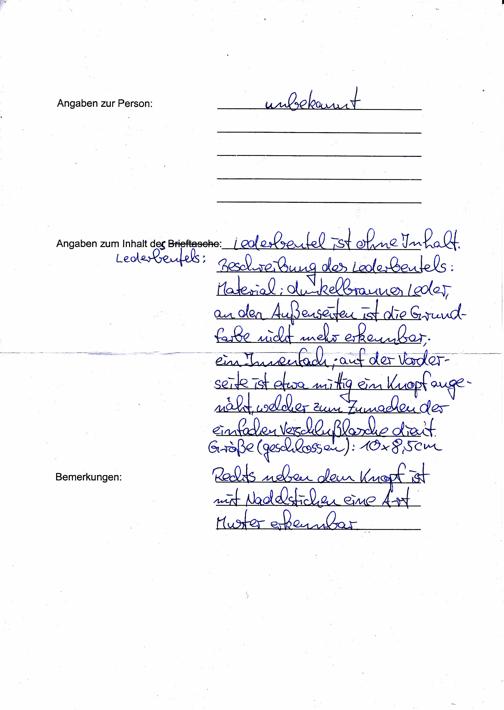 Angaben zur Person: unbekannt
Angaben zum Inhalt des Brieftasche: Lederbeutel ist ohne Inhalt.
Lederbeutels: Beschreibung des Lederbeutels:
Material: dunkelbraunes Leder,
an den Außenseiten ist die Grund-
farbe nicht mehr erkennbar;
ein Innenfach; auf der Vorder-
seite ist etwa mittig ein Knopf ange-
näht, welcher zum Zumachen der
einfachen Verschlußlasche dient.
Größe (geschlossen): 10x8,5cm
Bemerkungen: Rechts neben dem Knopf ist
mit Nadelstichen eine Art
Muster erkennbar